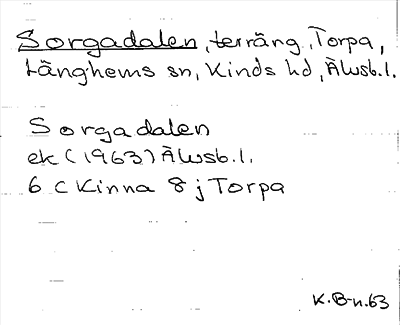 Sorgadalen, terräng, Torpa,
Länghems sn, Kinds hd, Älvsb.l.
Sorgadalen
ek (1963) Älvsb.l.
6 C Kinna 8 j Torpa
K.B-n.63